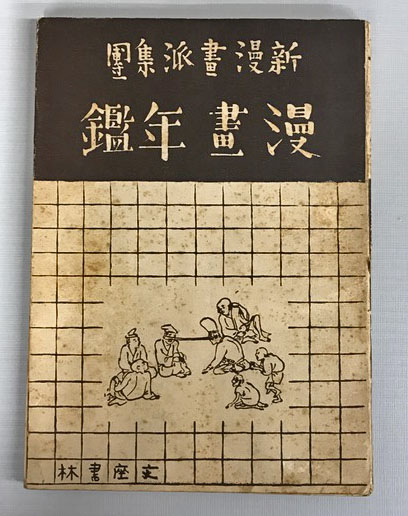 新漫畫派集團
漫畫年鑑
文座書林